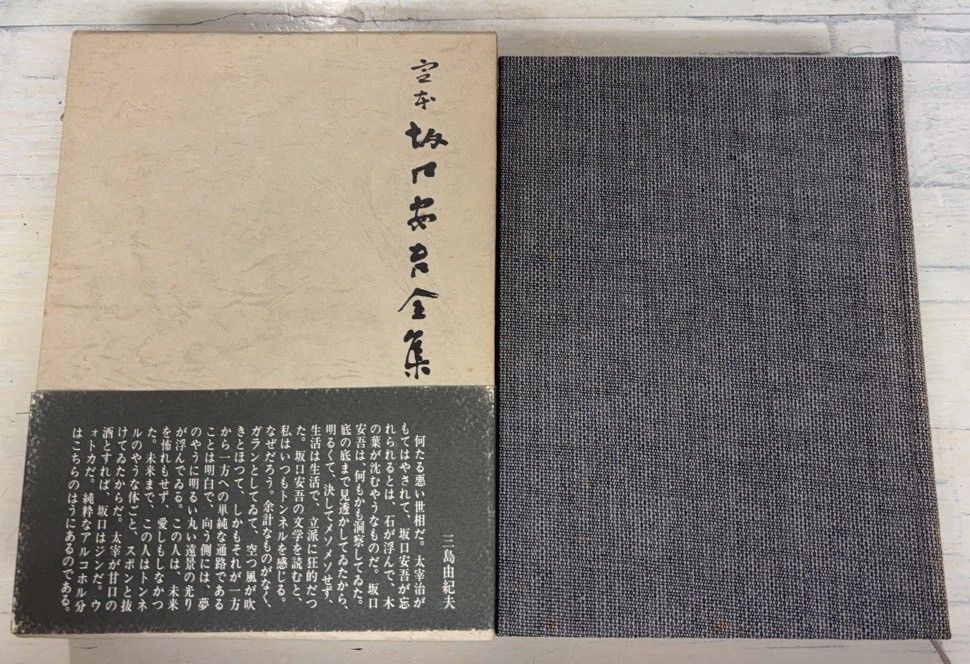 定本 坂口安吾全集
三島由紀夫
何たる悪い世相だ。太宰治が
もてはやされて、坂口安吾が忘
れられるとは、石が浮んで、木
の葉が沈むやうなものだ。坂口
安吾は、何もかも洞察してゐた。
底の底まで見透かしてゐたから、
明るくて、決してメソメソせず、
生活は生活で、立派に狂的だつ
た。坂口安吾の文学を読むと、
私はいつもトンネルを感じる。
なぜだらう。余計なものがなく、
ガランとしてゐて、空つ風が吹
きとほつて、しかもそれが一方
から一方への単純な通路である
ことは明白で、向う側には、夢
のやうに明るい丸い遠景の光り
が浮んでゐる。この人は、未来
を怖れもせず、愛しもしなかつ
た。未来まで、この人はトンネ
ルのやうな体ごと、スポンと抜
けてゐたからだ。太宰が甘口の
酒とすれば、坂口はジンだ。ウ
オトカだ。純粋なアルコホル分
はこちらのはうにあるのである。